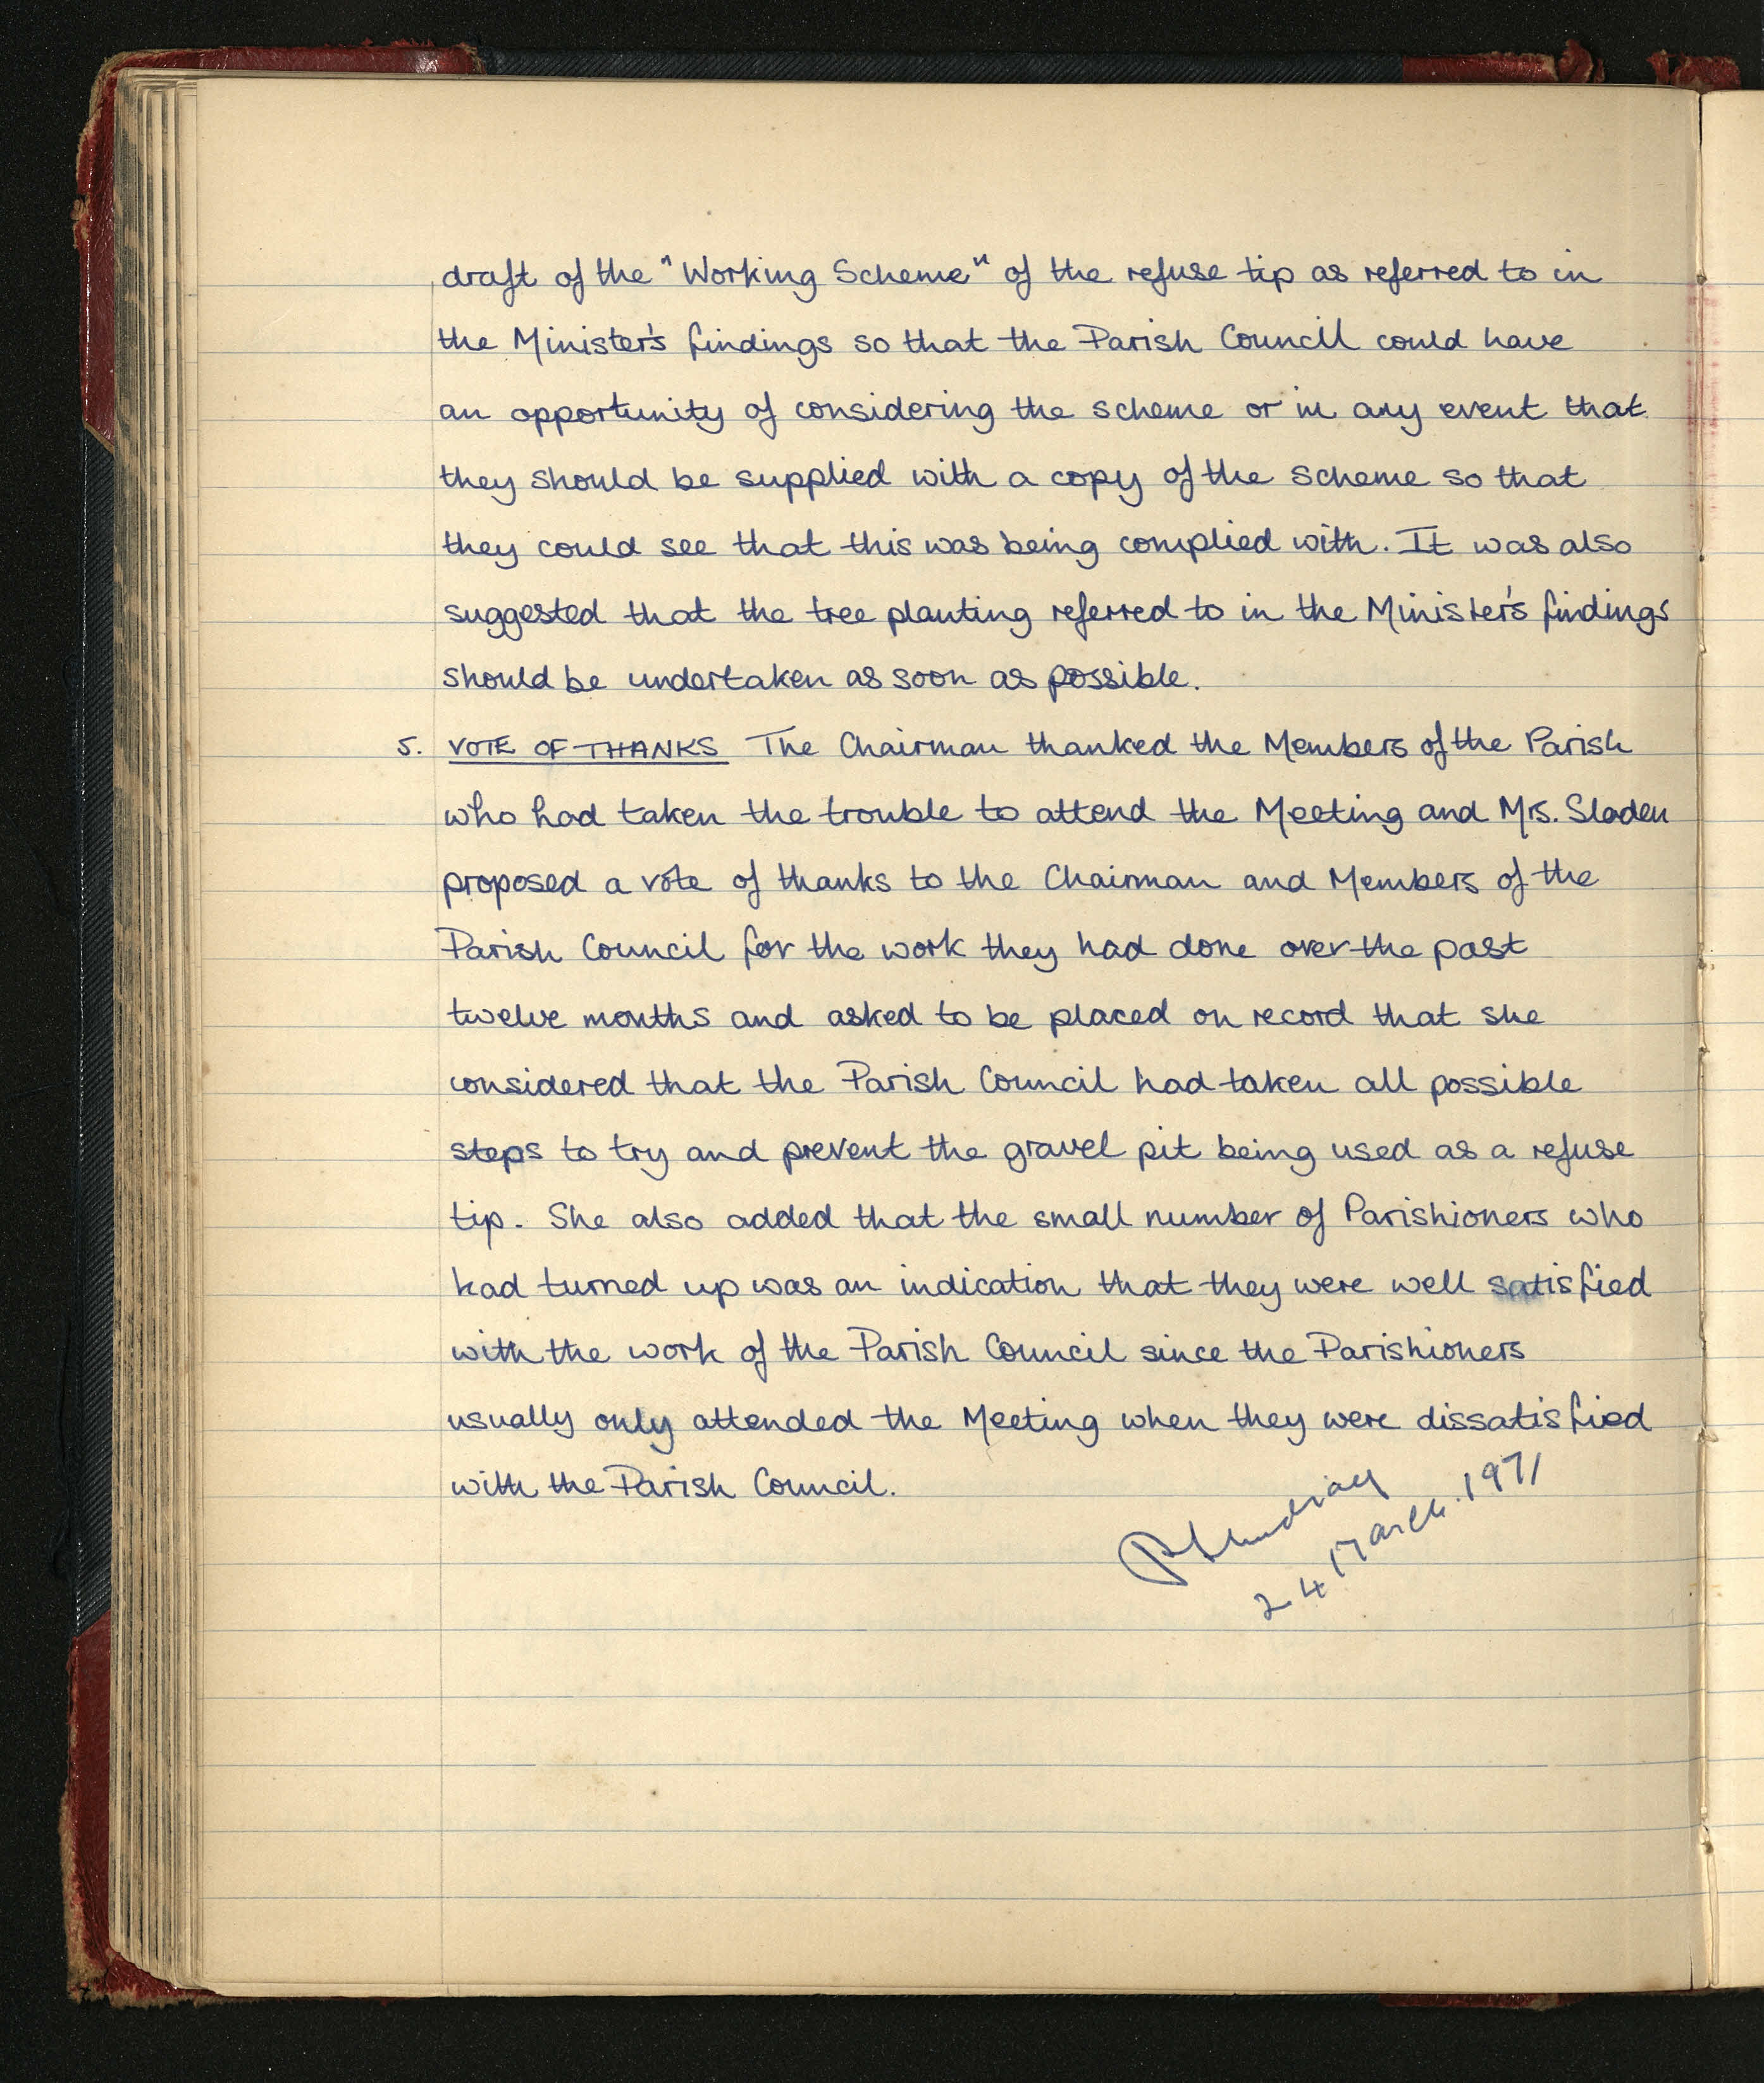 draft of the "Working Scheme" of the refuse tip as referred to in
the Minister's findings so that the Parish Council could have
an opportunity of considering the scheme or in any event that
they should be supplied with a copy of the scheme so that
they could see that this was being complied with. It was also
suggested that the tree planting referred to in the Minister's findings
should be undertaken as soon as possible.
5. VOTE OF THANKS The Chairman thanked the Members of the Parish
who had taken the trouble to attend the Meeting and Mrs. Sladen
proposed a vote of thanks to the Chairman and Members of the
Parish Council for the work they had done over the past
twelve months and asked to be placed on record that she
considered that the Parish Council had taken all possible
steps to try and prevent the gravel pit being used as a refuse
tip. She also added that the small number of Parishioners who
had turned up was an indication that they were well satisfied
with the work of the Parish Council since the Parishioners
usually only attended the Meeting when they were dissatisfied
with the Parish Council.
24 March. 1971